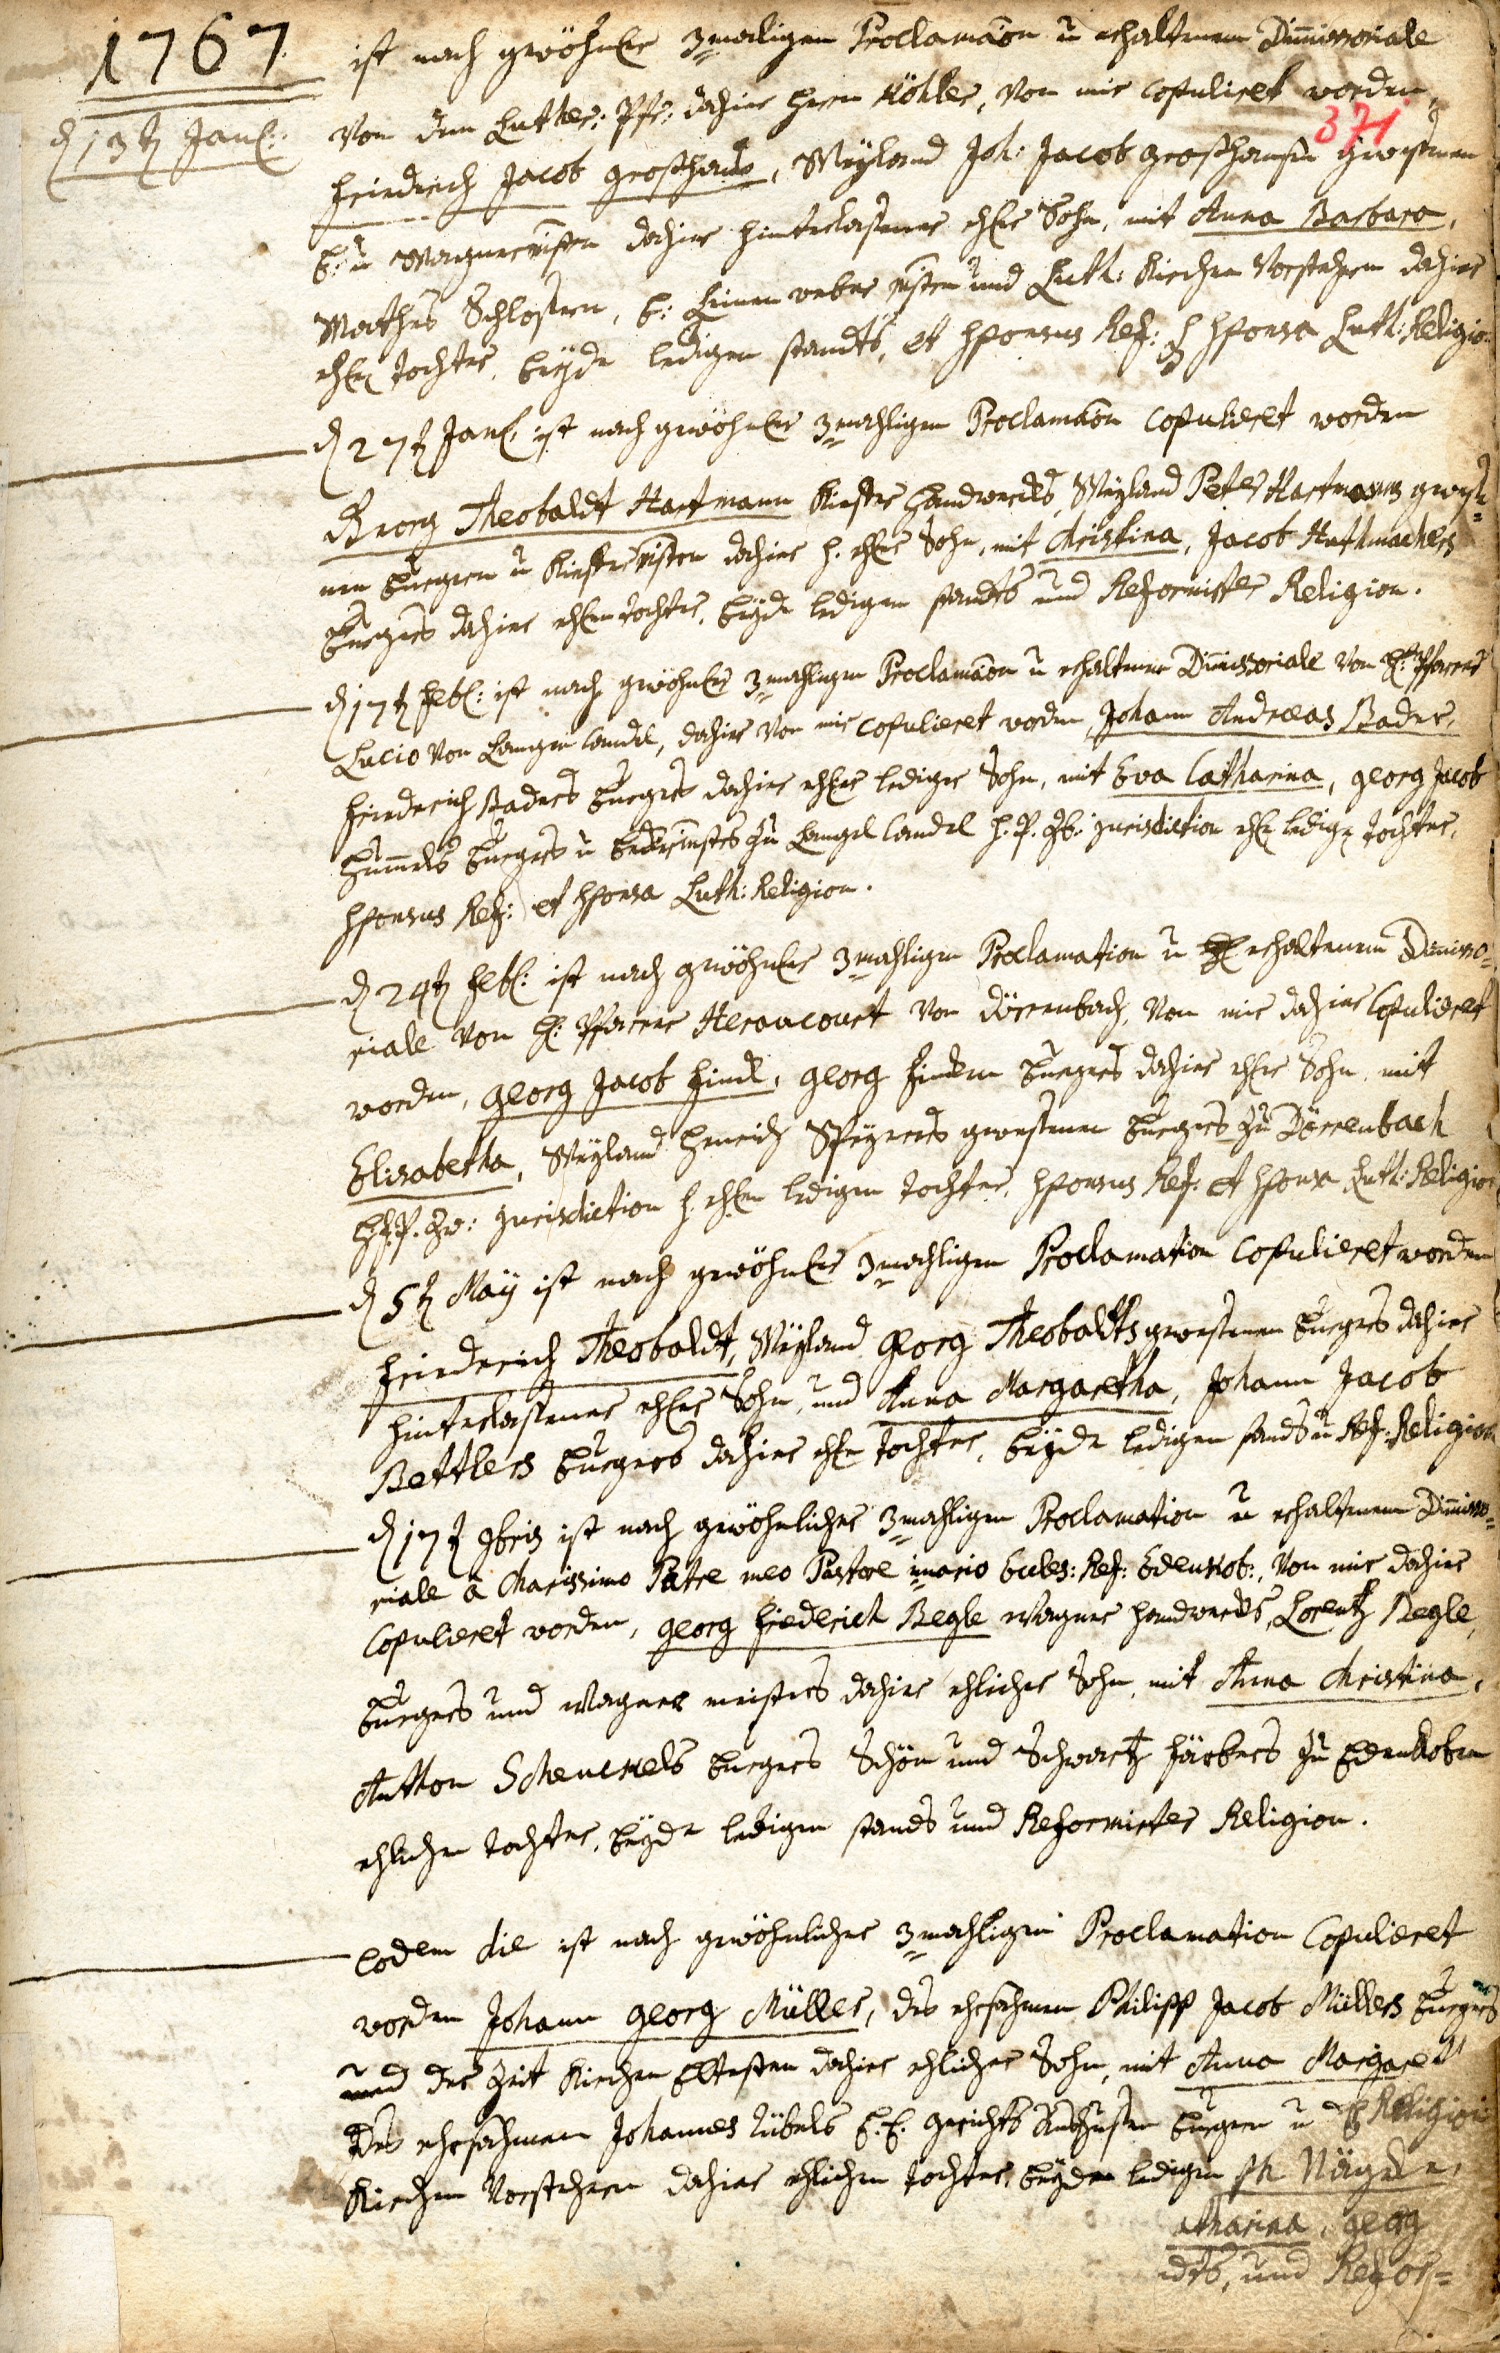 1767
d 13t Janr:
ist nach gewöhnler 3maligen Proclamaon u erhaltenem Dimissoriale
von dem Luther: Pfr: dahier Herrn Köhler, von mir copuliret worden,
371
Friedrich Jacob Großhans, Weyland Joh: Jacob Großhansen gewesenen
b: u Wagnermstrn dahier hinterlaßener ehler Sohn, mit Anna Barbara,
Mathes Schloßern, b: Leinenweber mstrn und Luth: Kirchen Vorstehern dahier
ehln Tochter, beyde ledigen standts, et Sponsus Ref: & Sponsa Luth: Religion
d 27t Janr: ist nach gewöhnler 3mahligen Proclamaon copulieret worden
Georg Theobaldt Hartmann Kiefer Handwercks, Weyland Peter Hartmanns geweße=
nen Burgern u Kiefermstrn dahier h. ehler Sohn, mit Christina, Jacob Huthmachers
Burgers dahier ehlen Tochter, beyde ledigen standts und Reformirter Religion.
d 17t Febr: ist nach gewöhnler 3mahligen Proclamaon u erhaltenem Dimissoriale von H: Pfarrer
Lucio von Langen Candel, dahier von mir copulieret worden, Johann Andreas Bader,
Friederich Baders Burgers dahier ehler lediger Sohn, mit Eva Catharina, Georg Jacob
Hummels Burgers u beckermsters zu Langel Candel H. P. Zb: Jurisdiction ehle ledige Tochter,
Sponsus Ref: et Sponsa Luth: Religion.
d 24t Febr: ist nach gewöhnler 3mahligen Proclamation u erhaltenem Dimisso=
riale von H: Pfarrer Heroucourt von Dörrenbach, von mir dahier Copulieret
worden, Georg Jacob Finck, Georg Fincken Burgers dahier ehler Sohn, mit
Elisabetha, Weyland Henrich Speyrers gewesenen Burgers zu Dörrenbach
H. P. Zw: Jurisdiction h. ehlen ledigen Tochter, Sponsus Ref: et Sponsa Luth: Religion
d 5t May ist nach gewöhnler 3mahligen Proclamation copulieret worden
Friederich Theobaldt, Weyland Georg Theobaldts gewesenen Burgers dahier
hinterlaßener ehler Sohn, und Anna Margaretha, Johann Jacob
Bettlers Burgers dahier ehle Tochter, beyde ledigen stands u Ref: Religion
d 17t 9bris ist nach gewöhnlicher 3mahligen Proclamation u erhaltenem Dimisso=
riale à Charissimo Patre meo Pastore imario Eccles: Ref: Edenkob:, von mir dahier
Copulieret worden, Georg Friederich Begle Wagner Handwercks, Lorentz Begle,
Burgers und Wagner meisters dahier ehlicher Sohn, mit Anna Christina,
Anthon Schenckels Burgers Schön und Schwartz färbers zu Edenkoben
ehlichen Tochter, beyde ledigen stands und Reformirter Religion.
Eodem die ist nach gewöhnlicher 3mahligen Proclamation Copulieret
worden Johann Georg Müller, des ehrsahmen Philipp Jacob Müllers Burgers
und der Zeit Kirchen Eltesten dahier ehlicher Sohn, mit Anna Margareth
Des ehrsahmen Johannes Kübels E. E. Gerichts Burgern u Religion
Kirchen Vorstehern dahier ehlichen Tochter, beyde ledigen
atharina, Georg
dts, und Refor=